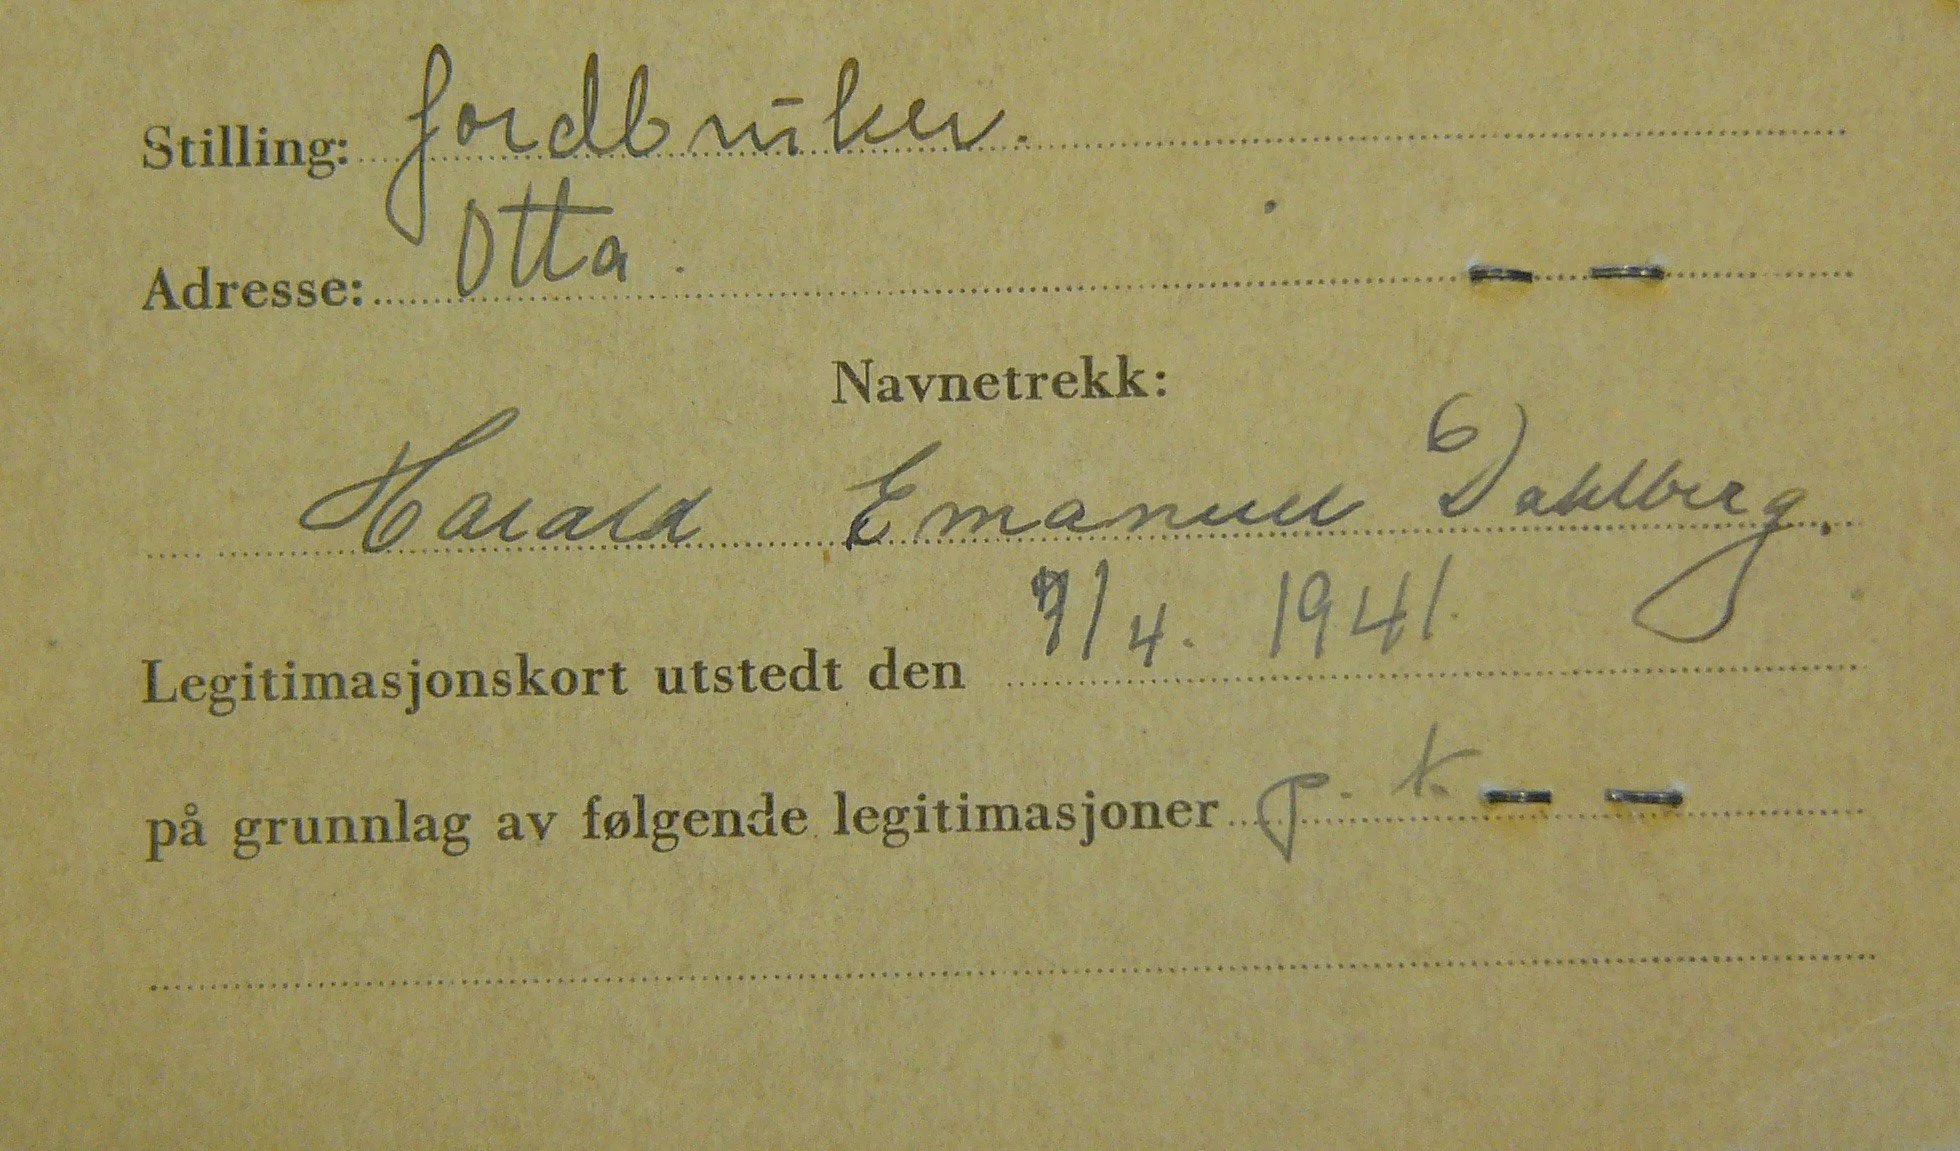 Stilling: Jordbruker.
Adresse: Otta.
Navnetrekk:
Harald Emanuel Dahlberg.
Legitimasjonskort utstedt den 7/4. 1941.
på grunnlag av følgende legitimasjoner p. k.